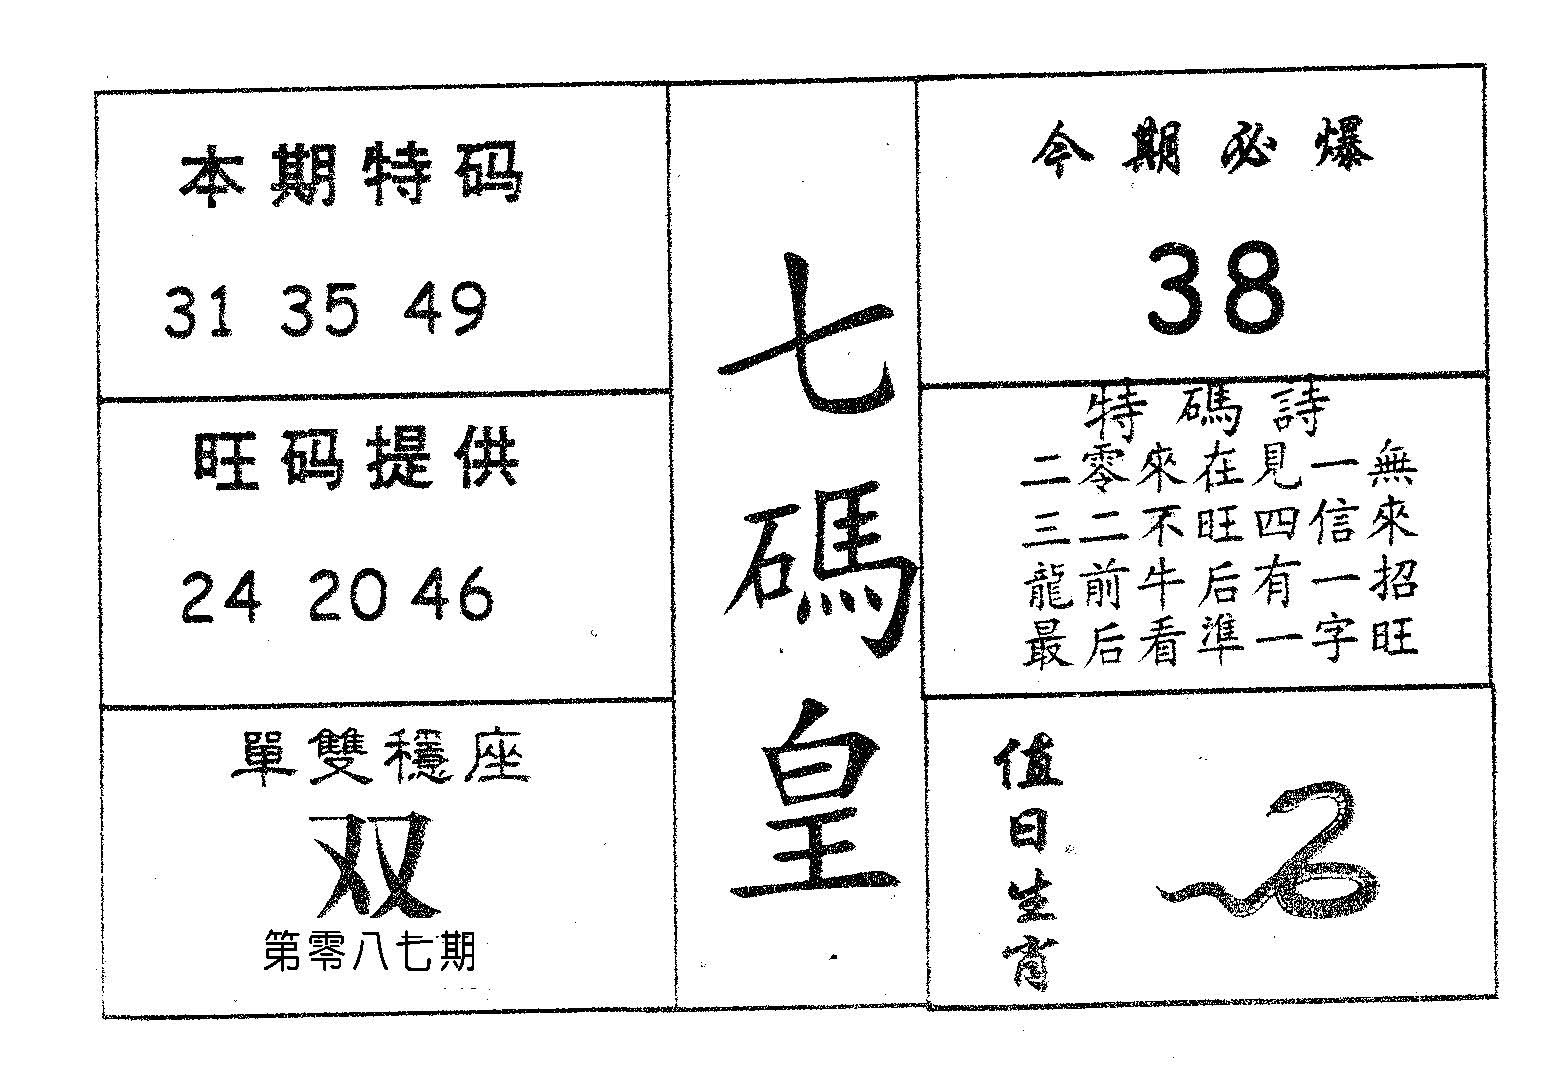 本期特码
31 35 49
旺码提供
24 20 46
單雙穩座
双
第零八七期
七碼皇
今期必爆
38
特碼詩
二零來在見一無
三二不旺四信來
龍前牛后有一招
最后看準一字旺
值日生肖